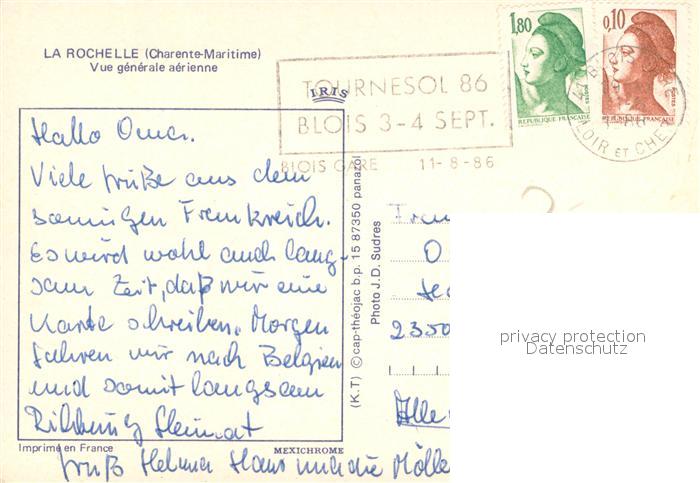 LA ROCHELLE (Charente-Maritime)
Vue générale aérienne
1,80
REPUBLIQUE FRANÇAISE
0,10
REPUBLIQUE FRANÇAISE
TOURNESOL 86
BLOIS 3-4 SEPT.
BLOIS GARE 11-8-86
LOIR ET CHER
IRIS
Hallo Omer.
Viele Grüße aus dem
sonnigen Frankreich.
Es wird wohl auch lang-
sam Zeit, daß wir eine
Karte schreiben. Morgen
fahren wir nach Belgien
und somit langsam
Richtung Heimat
Gruß Helma Hans und die Mölle
Imprimé en France
MEXICHROME
(K.T) © cap-théojac b.p. 15 87350 panazol
Photo J.D. Sudres
O
2350
Alle
privacy protection
Datenschutz